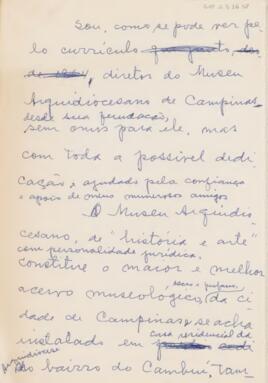 Sou, como se pode ver pe
lo currículo
diretor do Museu
Arquidiocesano de Campinas
desde sua fundação,
sem onus para ele, mas
com toda a possivel dedi
cação, ajudado pela confiança
e apoio de meus numerosos amigos
O Museu Arquidio
cesano, de "história e arte"
com personalidade jurídica,
constitue o maior e melhor
sacro e profano,
acervo museologico da ci
dade de Campinas, e se acha
casa residencial da
instalado em
no bairro do Cambuí. Tam